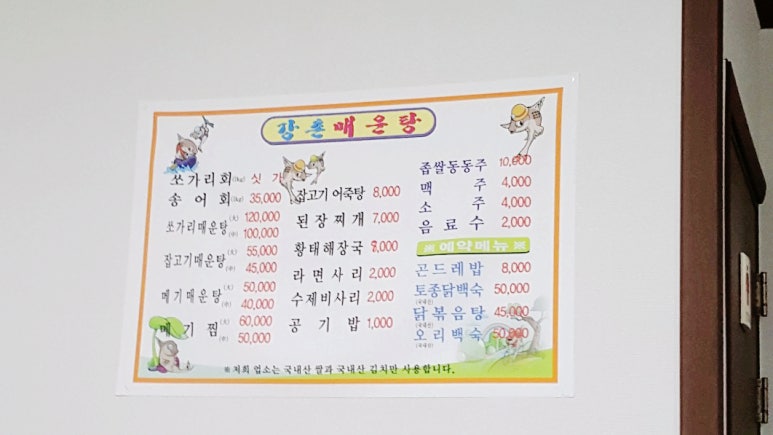 강촌매운탕
쏘가리회(1kg) 싯가
송어회(kg) 35,000
쏘가리매운탕 (大) 120,000
(中) 100,000
잡고기매운탕 (大) 55,000
(中) 45,000
메기매운탕 (大) 50,000
(中) 40,000
메기찜 (大) 60,000
(中) 50,000
잡고기 어죽탕 8,000
된장찌개 7,000
황태해장국 8,000
라면사리 2,000
수제비사리 2,000
공기밥 1,000
좁쌀동동주 10,000
맥주 4,000
소주 4,000
음료수 2,000
※예약메뉴※
곤드레밥 8,000
토종닭백숙 50,000
(국내산)
닭볶음탕 45,000
(국내산)
오리백숙 50,000
(국내산)
※저희 업소는 국내산 쌀과 국내산 김치만 사용합니다.